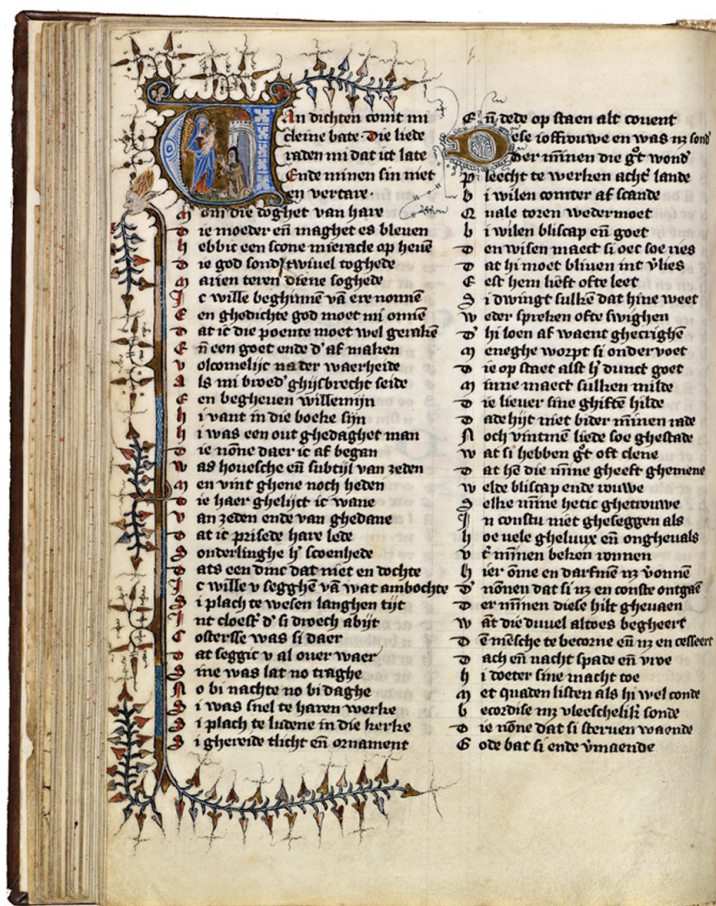 An dichten comt mi
cleine bate· Die liede
raden mi dat ict late
Ende minen sin niet
en vertare·
Om die doghet van hare
Die moeder en̄ maghet es bleuen
hebbic een scone mieracle op heuē
Die god sond' twiuel toghede
Marien teren diene soghede
Ic wille beghinnē vā ere nonnē
Een ghedichte god moet mi onnē
Dat ic die poente moet wel gerakē
En̄ een goet ende d' af maken
volcomelijc na der waerheide
Als mi broed' ghijsbrecht seide
Een begheuen willemijn
hi vant in die boeke sijn
hi was een out ghedaghet man
Die nōne daer ic af began
was houesche en̄ subtijl van zeden
Men vint ghene noch heden
Die haer ghelijct ic wane
van zeden ende van ghedane
Dat ic prisede hare lede
Sonderlinghe h' scoenhede
Dats een dinc dat niet en dochte
Ic wille v segghē vā wat ambochte
Si plach te wesen langhen tijt
Int cloest' d' si droech abijt
Costersse was si daer
Dat seggic v al ouer waer
Sine was lat no traghe
No bi nachte no bi daghe
Si was snel te haren werke
Si plach te ludene in die kerke
Si ghereide tlicht en̄ ornament
En̄ dede op staen alt couent
Dese ioffrouwe en was nz sond'
Der mīnen die g't wond'
pleecht te werken acht' lande
bi wilen comter af scande
Quale toren wedermoet
bi wilen bliscap en̄ goet
Den wisen maect si oec soe ries
Dat hi moet bliuen int v'lies
Eest hem lieft ofte leet
Si dwingt sulkē dat hine weet
weder spreken ofte swighen
D' hi loen af waent ghecrighē
Meneghe worpt si onder voet
Die op staet alst h' dunct goet
Minne maect sulken milde
Die liever sine ghiftē hilde
Dade hijt niet bider mīnen rade
Noch vintmē liede soe ghestade
wat si hebben g't oft clene
Dat hē die mīne gheeft ghemene
welde bliscap ende rouwe
Selke mīne hetic ghetrouwe
In constu niet gheseggen als
hoe vele gheluux en̄ ongheuals
vt' mīnen beken ronnen
hier ōme en darfmē nz v'onnē
D' nōnen dat si nz en conste ontgaē
Der mīnen diese hilt gheuaen
want die duuel altoes begheert
Dē mēsche te becorne en̄ nz en cesseert
Dach en̄ nacht spade en̄ vroe
hi doeter sine macht toe
Met quaden listen als hi wel conde
becordise mz vleeschelikē sonde
Die nōne dat si steruen waende
Gode bat si ende v'maende